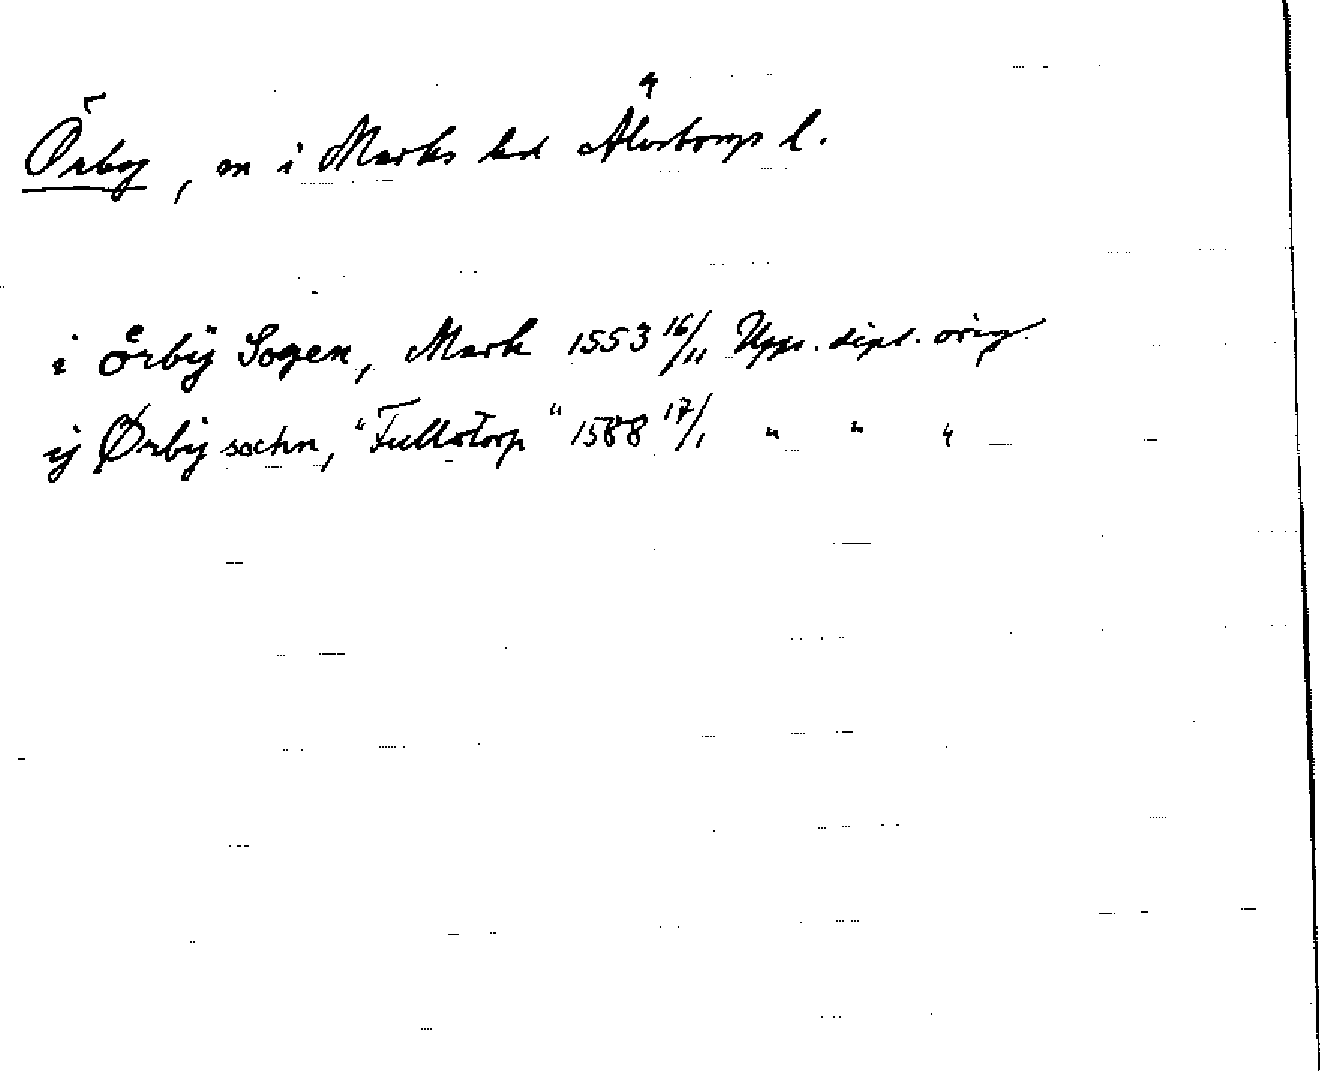 Örby, sn i Marks hd Älvsborgs l.
i örbÿ Sogen, Mark 1553 16/11 Upps. dipl. orig.
ij Ørbÿ sochn, "Fullstorp" 1588 17/1 " " "